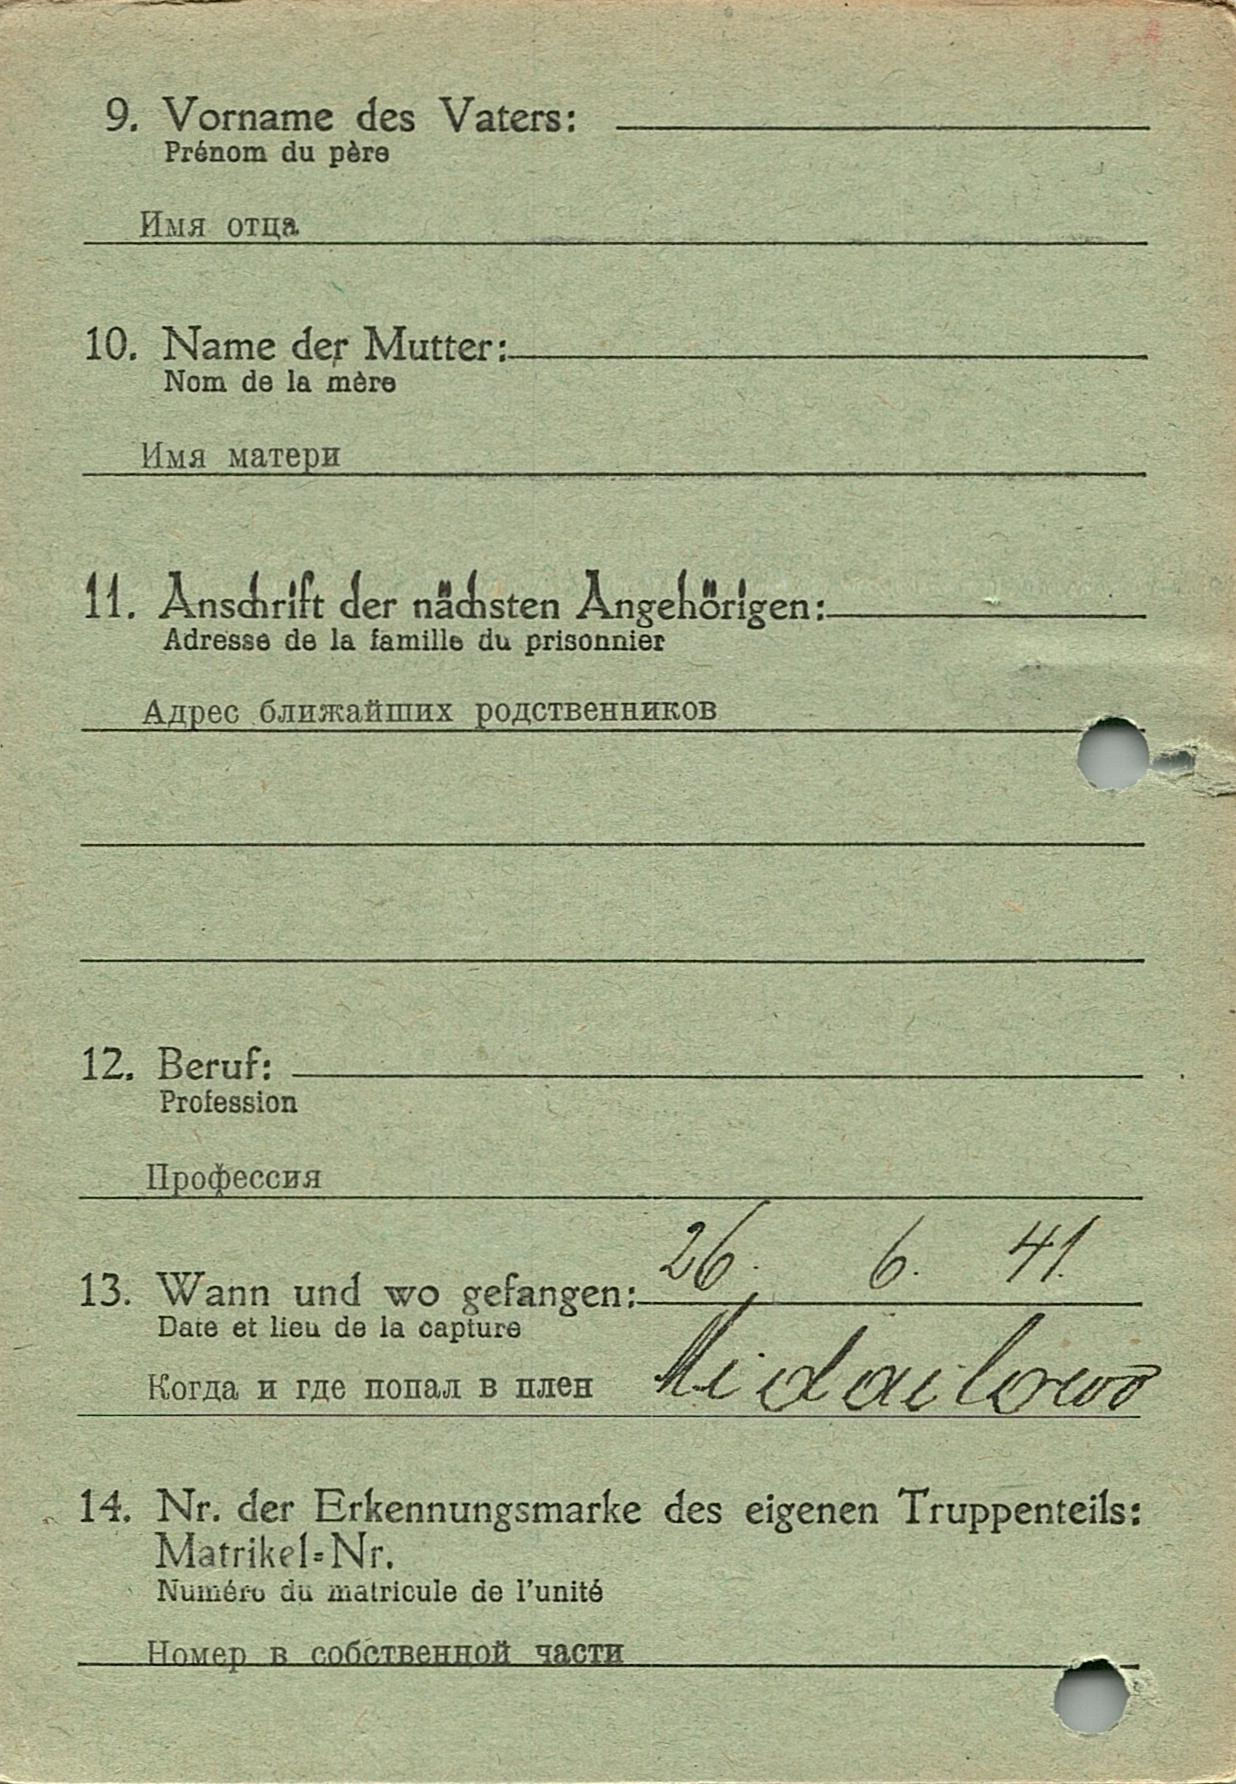 9. Vorname des Vaters:
Prénom du père
Имя отца
10. Name der Mutter:
Nom de la mère
Имя матери
11. Anschrift der nächsten Angehörigen:
Adresse de la famille du prisonnier
Адрес ближайших родственников
12. Beruf:
Profession
Профессия
26. 6. 41.
13. Wann und wo gefangen:
Date et lieu de la capture
Когда и где попал в плен
14. Nr. der Erkennungsmarke des eigenen Truppenteils:
Matrikel=Nr.
Numéro du matricule de l'unité
Номер в собственной части